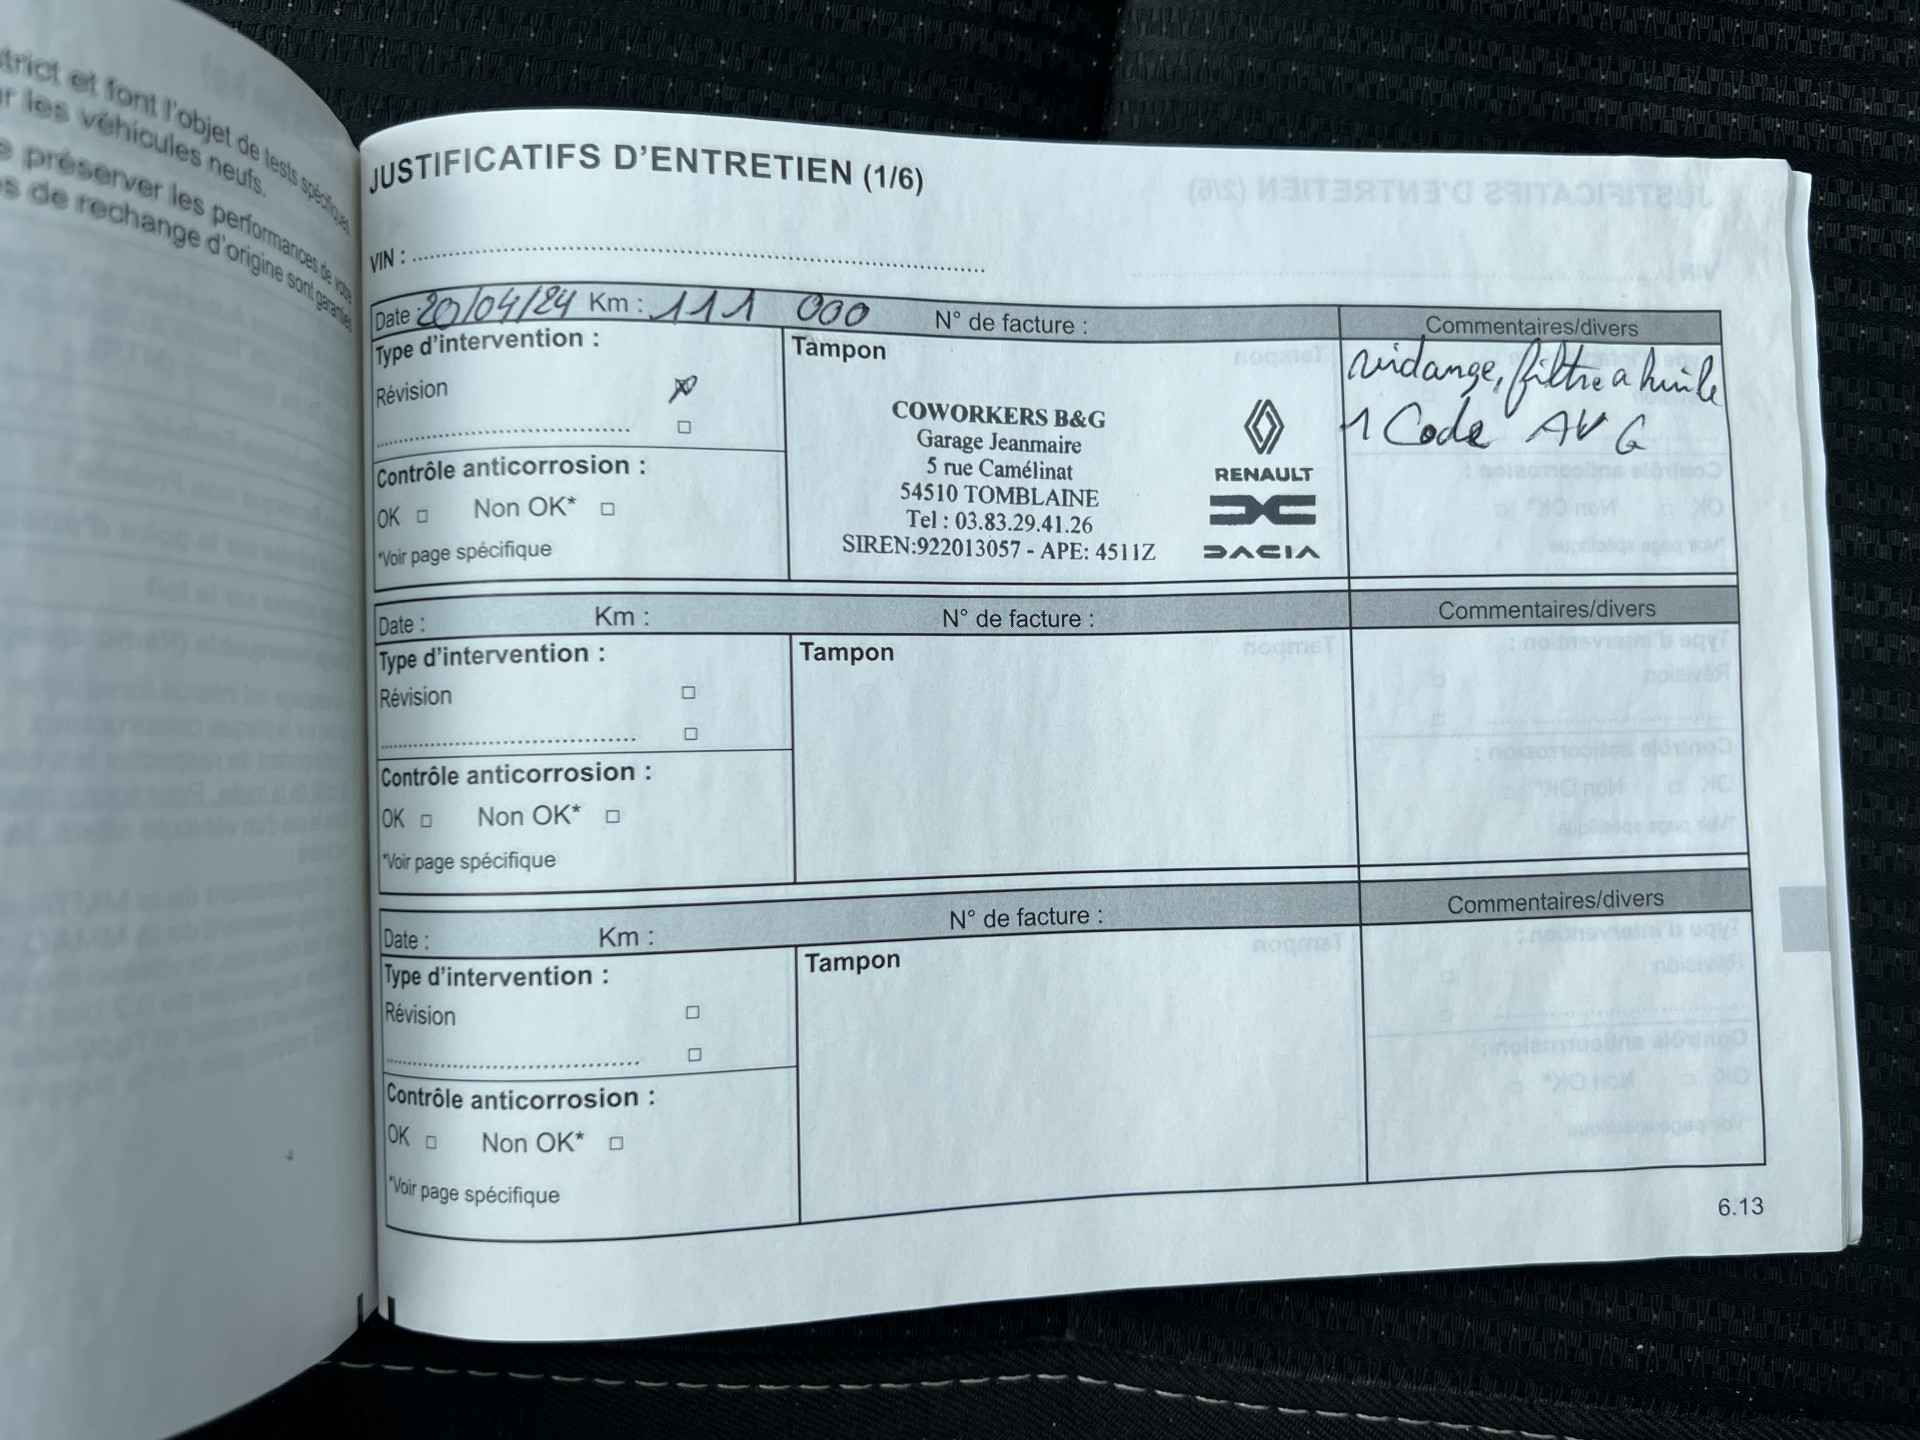 trict et font l'objet de tests spécifiques
r les véhicules neufs.
e préserver les performances de votre
s de rechange d'origine sont garanties
JUSTIFICATIFS D'ENTRETIEN (1/6)
VIN :
Date : 20/04/24 Km : 111 000 N° de facture : Commentaires/divers
Type d'intervention : Tampon
Révision
Contrôle anticorrosion :
OK □ Non OK* □
*Voir page spécifique
COWORKERS B&G
Garage Jeanmaire
5 rue Camélinat
54510 TOMBLAINE
Tel : 03.83.29.41.26
SIREN:922013057 - APE: 4511Z
RENAULT
DACIA
vidange, filtre a huile
1 Code AV G
Date : Km : N° de facture : Commentaires/divers
Type d'intervention : Tampon
Révision □
□
Contrôle anticorrosion :
OK □ Non OK* □
*Voir page spécifique
Date : Km : N° de facture : Commentaires/divers
Type d'intervention : Tampon
Révision □
□
Contrôle anticorrosion :
OK □ Non OK* □
*Voir page spécifique
6.13